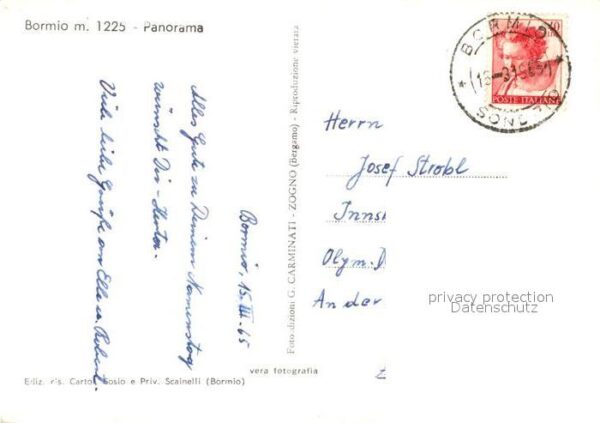 Bormio m. 1225 - Panorama
Bormio, 15.III.65
Alles Gute zu Deinem Namenstag
wünscht Dir
Viele liebe Grüße an Elle u. Robert.
Fotoedizioni G. CARMINATI - ZOGNO (Bergamo) - Riproduzione vietata
vera fotografia
Ediz. ris. Carto. Sosio e Priv. Scainelli (Bormio)
BORMIO
SONDRIO
POSTE ITALIANE
Herrn
Josef Strobl
Inns
Olym.
An der
privacy protection
Datenschutz